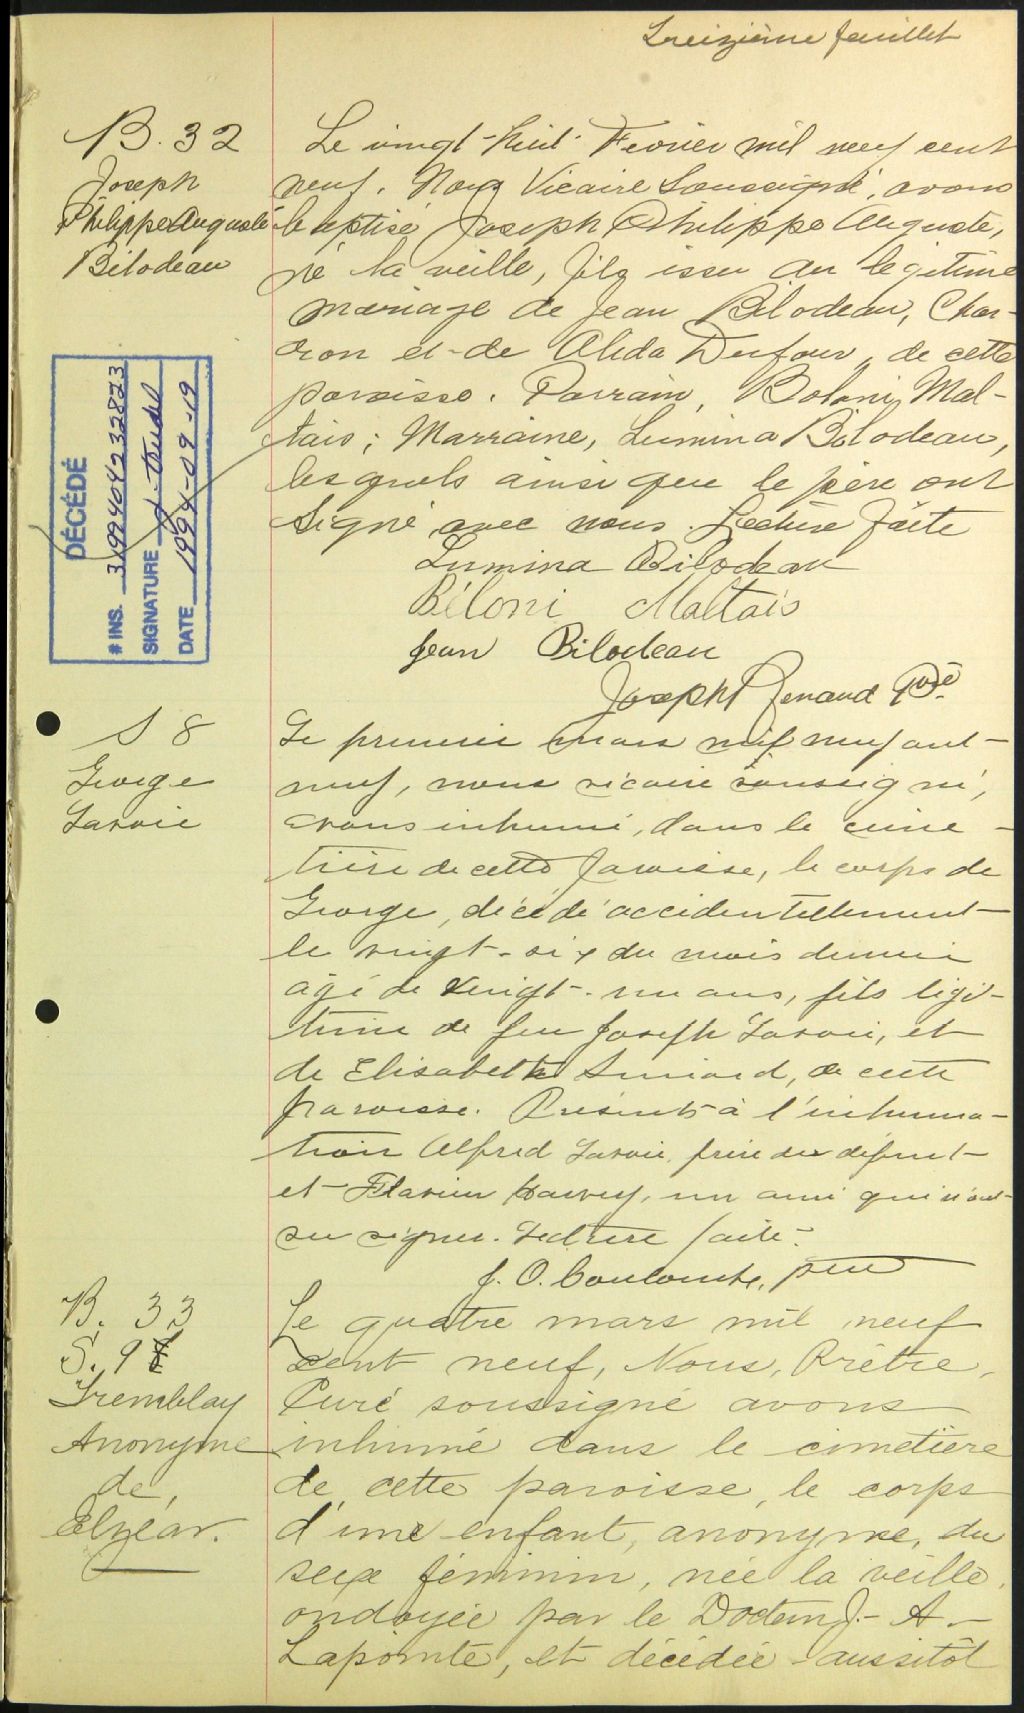 Treizième feuillet
B. 32
Joseph
Philippe Auguste
Bilodeau
Le vingt-huit Fevrier mil neuf cent
neuf, Nous Vicaire Soussigné, avons
baptisé Joseph Philippe Auguste,
né la veille, fils issu du légitime
mariage de Jean Bilodeau, Char-
ron et de Alida Dufour, de cette
paroisse. Parrain, Beloni Mal-
tais; Marraine, Lumina Bilodeau,
lesquels ainsi que le père ont
Signé avec nous. Lecture faite
Lumina Bilodeau
Béloni Maltais
Jean Bilodeau
Joseph Renaud Ptre
DÉCÉDÉ
# INS. 3199404232873
SIGNATURE
DATE 1994-09-19
S 8
George
Lavoie
Le premier mars mil neuf cent
neuf, nous vicaire soussigné,
avons inhumé, dans le cime-
tière de cette paroisse, le corps de
George, décédé accidentellement
le vingt-six du mois dernier
âgé de vingt-un ans, fils légi-
time de feu Joseph Lavoie, et
de Elisabeth Simard, de cette
paroisse. Présents à l'inhuma-
tion Alfred Lavoie, frère du défunt
et Flavien Harvey, un ami qui n'ont
su signer. Lecture faite.
J. O. Coulombe, ptre
B. 33
S. 9
Tremblay
Anonyme
de
Elzéar.
Le quatre mars mil neuf
cent neuf, Nous, Prêtre,
Curé soussigné avons
inhumé dans le cimetière
de cette paroisse, le corps
d'une enfant, anonyme, du
sexe féminin, née la veille,
ondoyée par le Docteur J.-A.-
Lapointe, et décédée aussitôt